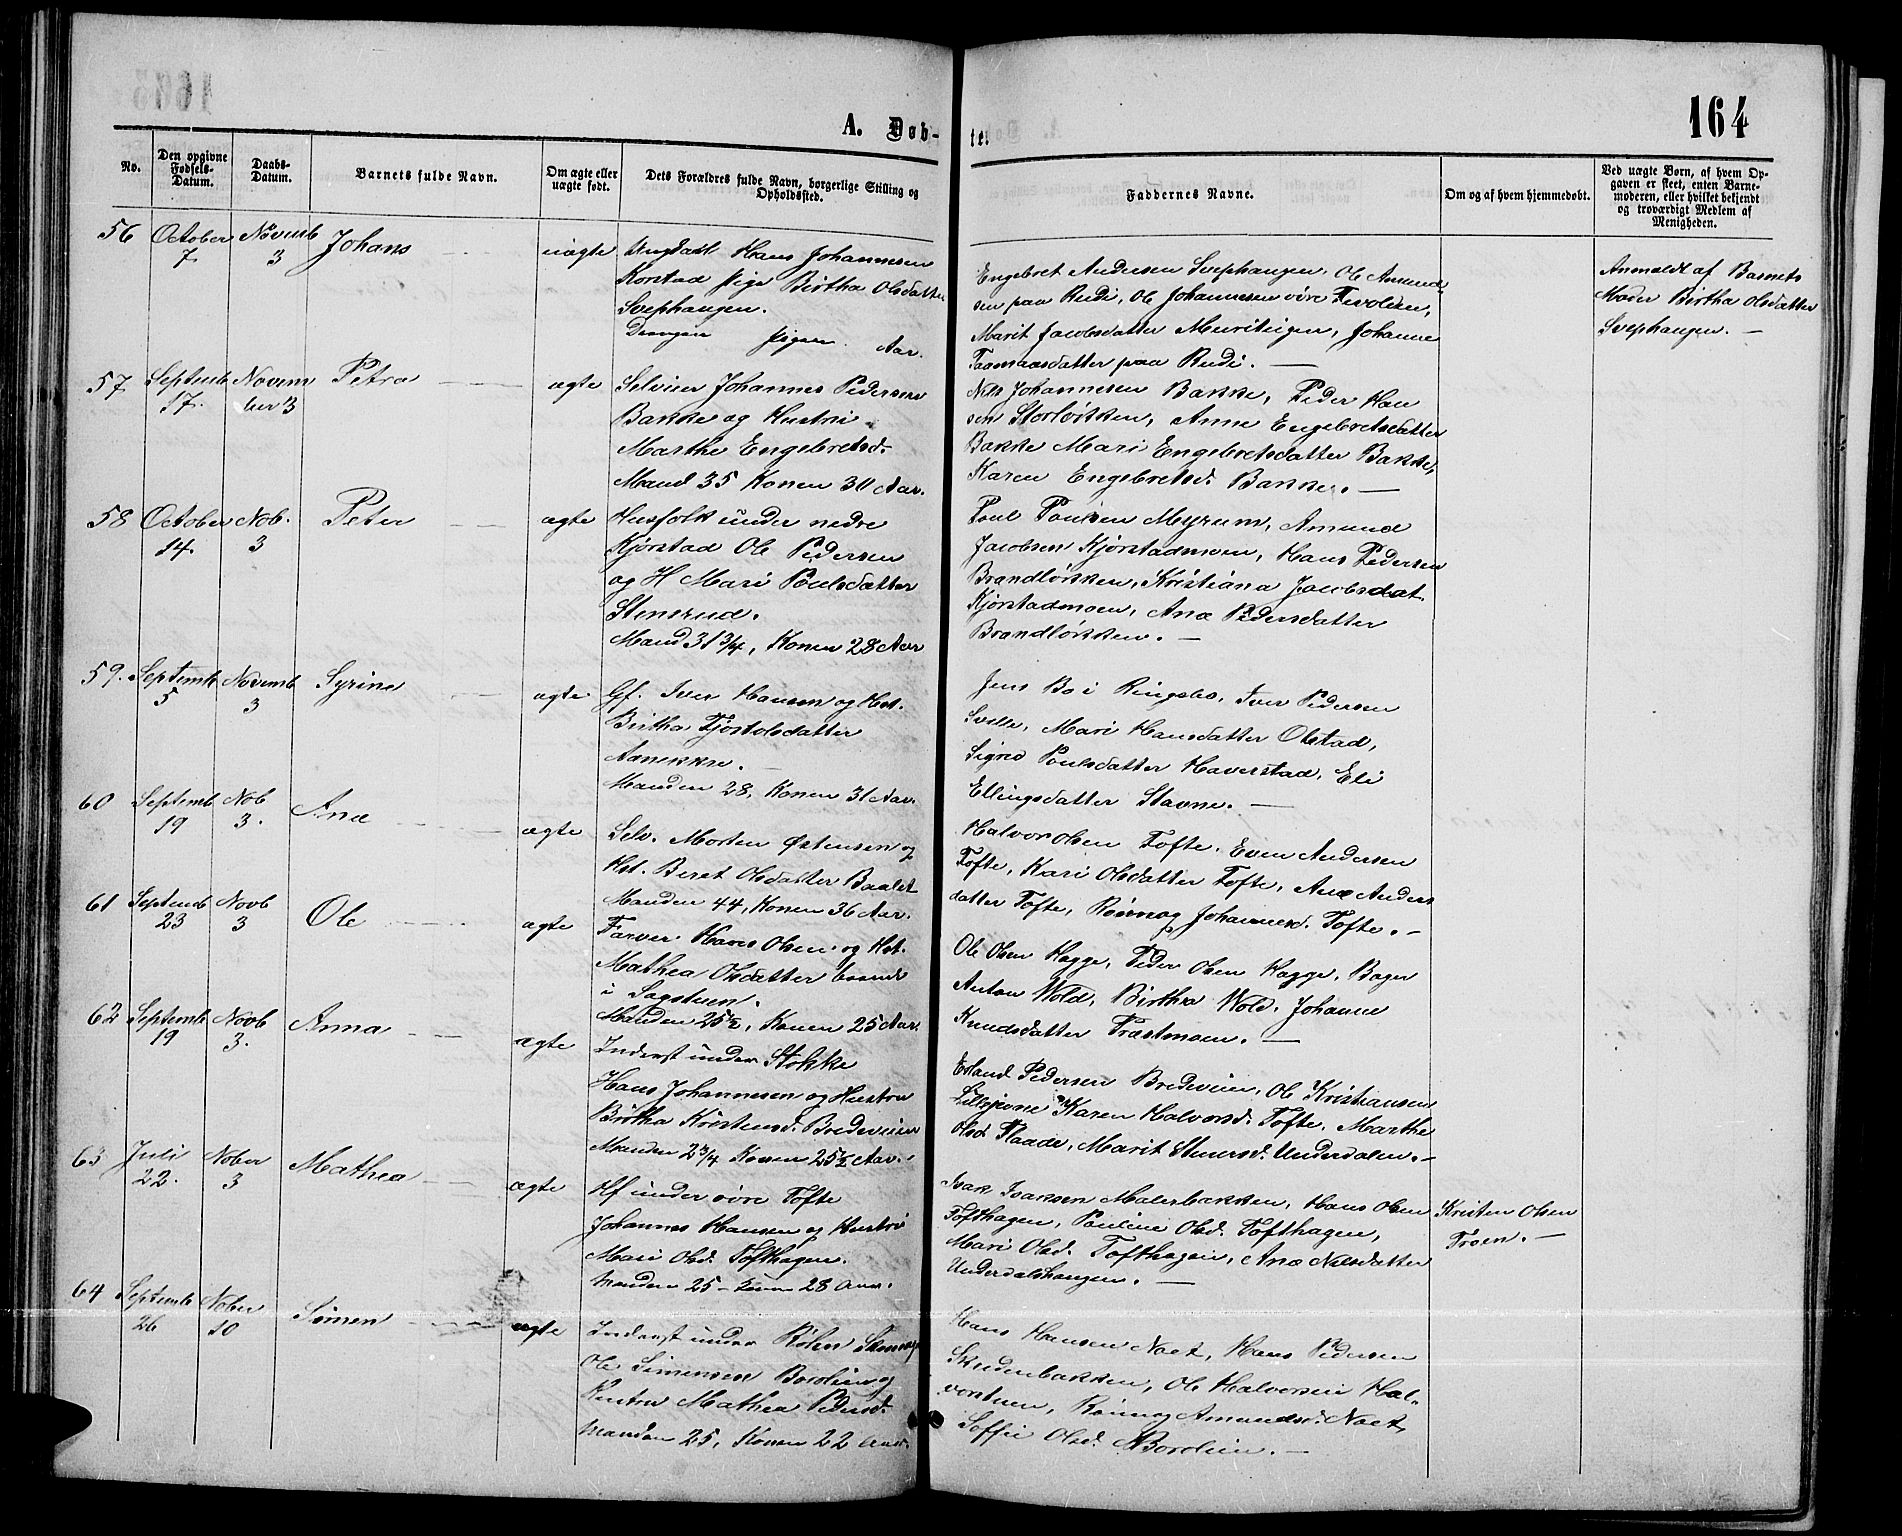 164
A. Døb-
te.
No.
Den opgivne Fødsels-Datum.
Daabs-Datum.
Barnets fulde Navn.
Om ægte eller uægte født.
Dets Forældres fulde Navn, borgerlige Stilling og Opholdssted.
Faddernes Navne.
Om og af hvem hjemmedøbt.
Ved uægte Børn, af hvem Op-
gaven er skeet, enten Barne-
moderen, eller hvilket bekjendt
og troværdigt Medlem af
Menigheden.
56 October 7 Novemb 3 Johans uægte
Ungkarl Hans Johannesen
Korstad Pige Birtha Olsdatter
Svephaugen.
Drengen Pigen Aar.
Engebret Andersen Svephaugen, Ole Amund-
sen paa Rudi, Ole Johannesen øvre Tivolien,
Marit Jacobsdatter Muritigen, Johanne
Taamaasdatter paa Rudi. —
Anmeldt af Barnets
Moder Birtha Olsdatter
Svephaugen. —
57 Septemb 17. Novem ber 3 Petra ægte
Selveier Johannes Pedersen
Bakke og Hustru
Marthe Engebretsd.
Mand 35 Konen 30 Aar.
Nils Johannesen Bakke, Peder Han
sen Storløkken, Anne Engebretsdatter
Bakke Mari Engebretsdatter Bakke,
Karen Engebretsd. Bakke. —
58 October 14. Nob. 3 Peter ægte
Husfolk under nedre
Kjørstad Ole Pedersen
og H Mari Poulsdatter
Stensrud.
Mand 31 3/4, Konen 28 Aar
Poul Poulsen Myrum, Amund
Jacobsen Kjørstadmoen, Hans Pedersen
Brandløkken, Kristiana Jacobsdat.
Kjørstadmoen, Ane Pedersdatter
Brandløkken. —
59. Septemb 5 Novemb 3 Syrine ægte
Gf. Iver Hansen og Hst.
Birtha Tjostolsdatter
Aanekke.
Manden 28, Konen 31 Aar.
Jens Bo i Ringebo, Iver Pedersen
Svelle, Mari Hansdatter Olstad,
Sigrid Poulsdatter Haverstad, Eli
Ellingsdatter Stavne. —
60 Septemb 19 Nob 3. Ane ægte
Selv. Morten Østensen og
Hst. Beret Olsdatter Baalet
Manden 44, Konen 36 Aar.
Halvor Olsen Tofte, Even Andersen
Tofte, Kari Olsdatter Tofte, Ane Anders
datter Tofte, Rønnog Johannesd. Tofte. —
61 Septemb 23 Novb 3 Ole ægte
Farver Hans Olsen og Hst.
Mathea Olsdatter boende
i Sagstuen.
Manden 25 1/2, Konen 25 Aar.
Ole Olsen Hagge, Peder Olsen Hagge, Bager
Anton Wold, Birthe Wold, Johanne
Knudsdatter Præstmoen. —
62 Septemb 19 Novb 3. Anna ægte
Inderst under Stokke
Hans Johannesen og Hustru
Birtha Kristensd. Bredeveien
Manden 23/4 Konen 25 1/2 Aar.
Erland Pedersen Bredeveien, Ole Kristiansen
Lillejevne Karen Halvorsd. Tofte. Marthe
Olsd Flaade, Marit Steuersd. Underdalen. —
63 Juli 22. Nober 3 Mathea ægte
Hf under øvre Tofte
Johannes Hansen og Hustru
Mari Olsd. Tofthagen.
Manden 25 — Konen 28 Aar.
Isak Isaksen Malerbakken, Hans Olsen
Tofthagen, Pauline Olsd. Tofthagen,
Mari Olsd. Tofthagen, Ane Nilsdatter
Underdalshaugen. —
Kristen Olsen
Troen. —
64 Septemb 26 Nober 10 Simen ægte
Inderst under Bølen
Ole Simensen Borolien og
Hustru Mathea Pedersd.
Manden 25, Konen 22 Aar.
Hans Hansen Noet, Hans Pedersen
Skedenbakken, Ole Halvorsen Hal-
vorstuen, Rønnog Amundsd. Noet,
Soffie Olsd. Borolien. —